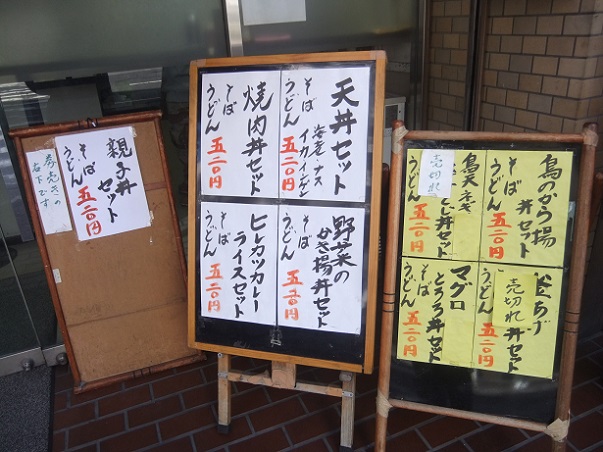 親子丼
セット
そば
うどん
五二〇円
券売きの
右下です
天丼セット
海老・ナス
イカ・インゲン
そば
うどん
五二〇円
焼肉丼セット
そば
うどん
五二〇円
野菜の
かき揚丼セット
そば
うどん
五二〇円
ヒレカツカレー
ライスセット
そば
うどん
五二〇円
鳥のから揚
丼セット
そば
うどん
五二〇円
売切れ
鳥天ネギ
そば
うどん
五二〇円
あげ
丼セット
売切れ
そば
うどん
五二〇円
マグロ
とろろ丼セット
そば
うどん
五二〇円